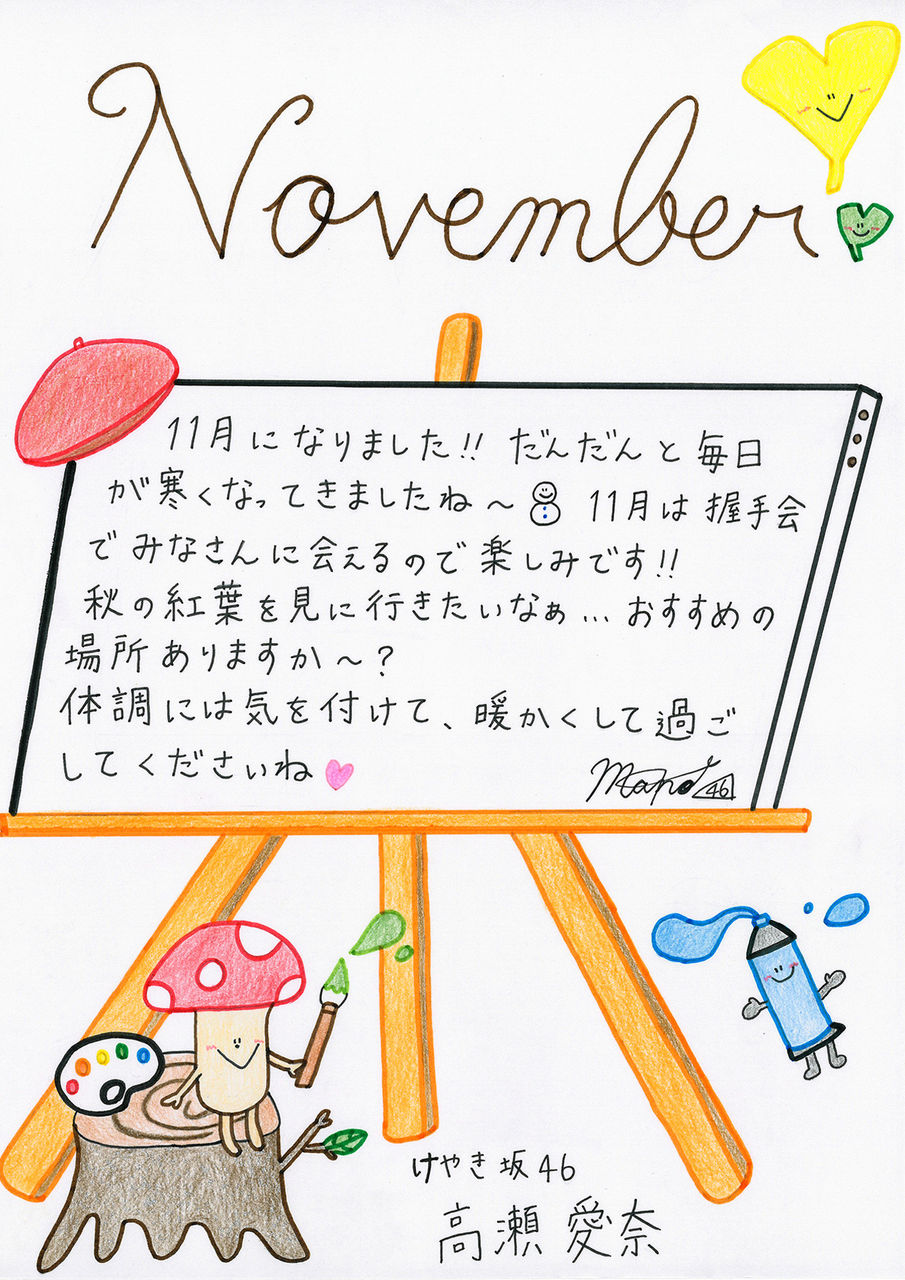 November
11月になりました!! だんだんと毎日
が寒くなってきましたね〜 11月は握手会
でみなさんに会えるので楽しみです!!
秋の紅葉を見に行きたいなぁ... おすすめの
場所ありますか〜?
体調には気を付けて、暖かくして過ご
してくださいね
Mana 46
けやき坂46
高瀬愛奈